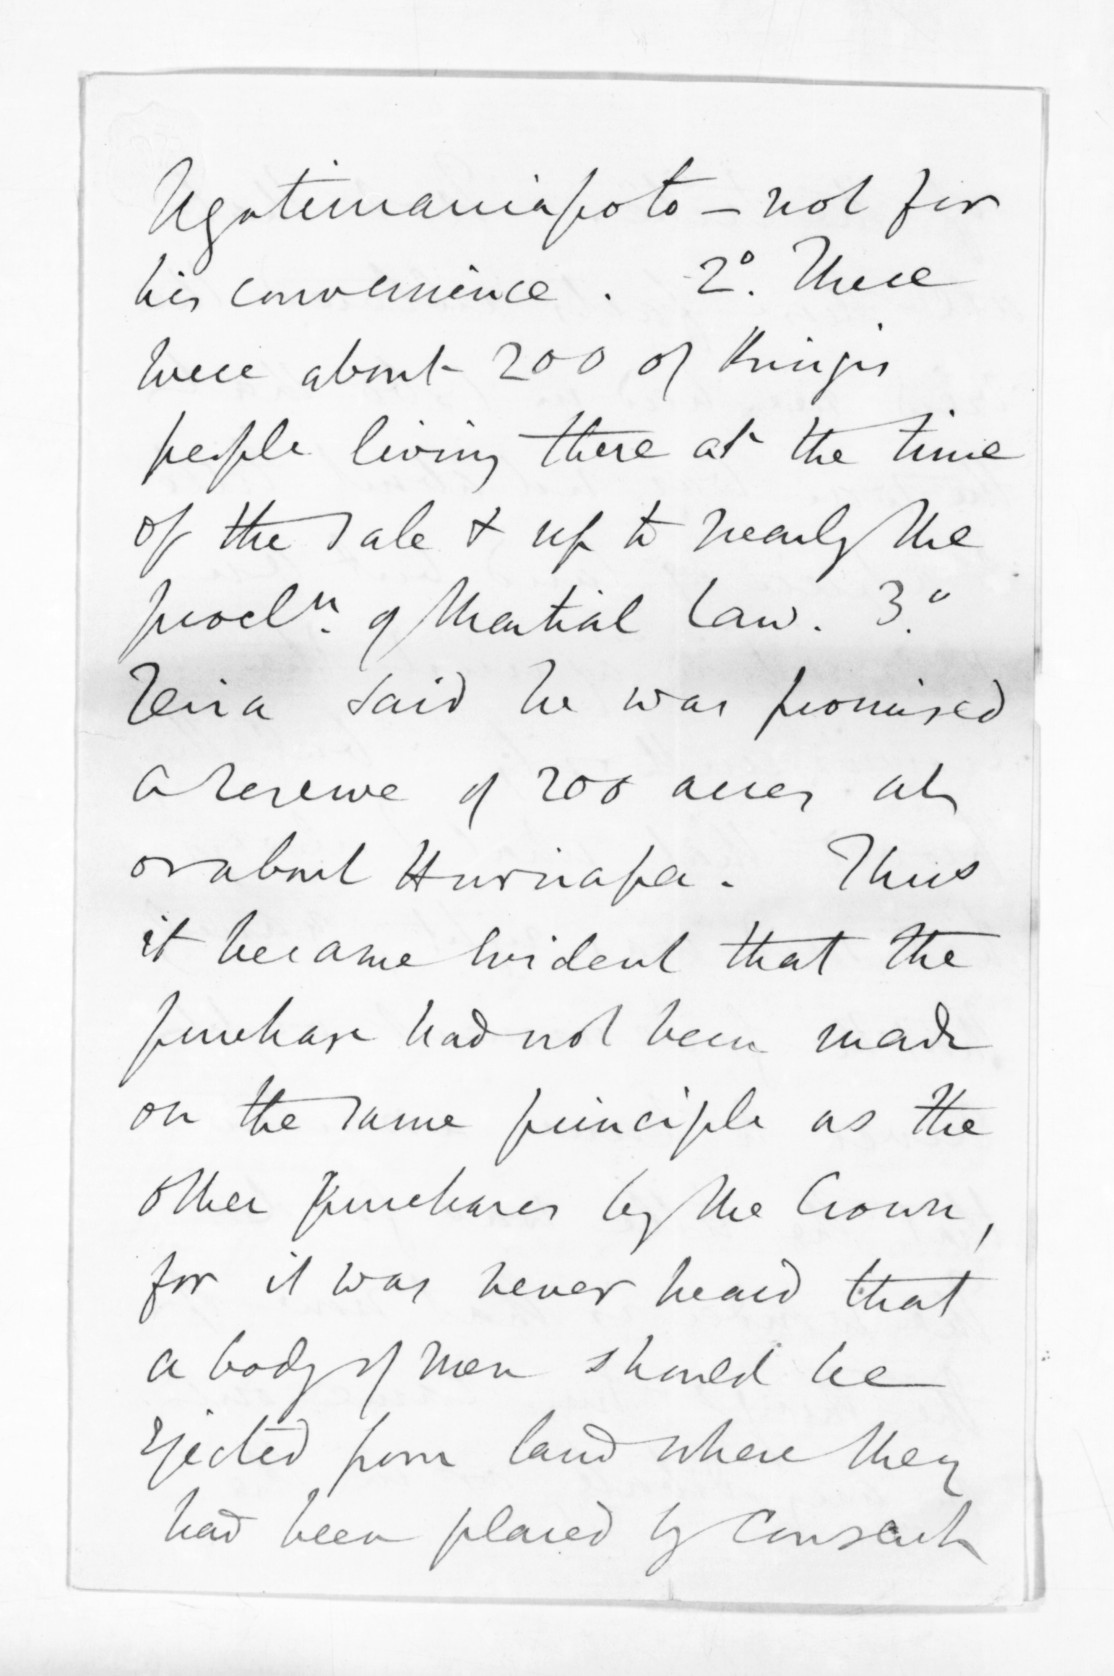 Ngatimaniapoto – not for
his convenience. 2°. There
were about 200 of Kingi's
people living there at the time
of the sale & up to nearly the
procln. of Martial Law. 3°.
Teira said he was promised
a reserve of 200 acres at
or about Hurirapa. Thus
it became evident that the
purchase had not been made
on the same principle as the
other purchases by the Crown,
for it was never heard that
a body of men should be
ejected from land where they
had been placed by consent